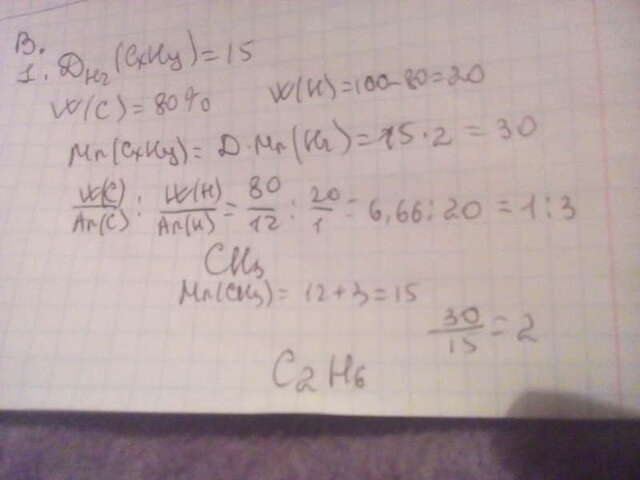 В.
1. D_H2 (CxHy) = 15
W(C) = 80% W(H) = 100-80 = 20
Mr(CxHy) = D · Mr(H2) = 15 · 2 = 30
W(C)/Ar(C) : W(H)/Ar(H) = 80/12 : 20/1 = 6,66 : 20 = 1 : 3
CH3
Mr(CH3) = 12 + 3 = 15
30/15 = 2
C2H6